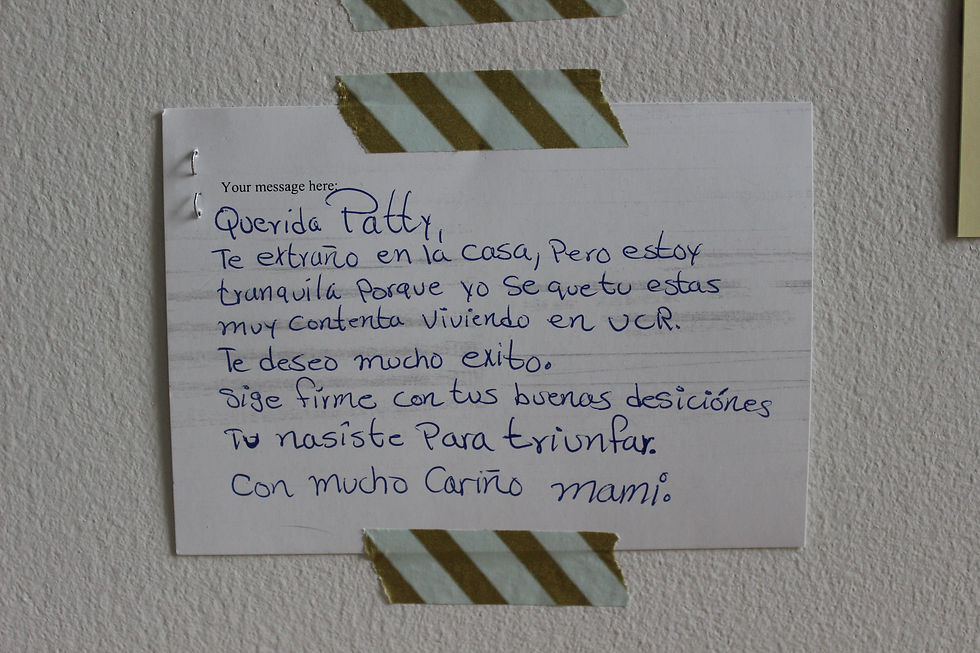 Your message here:
Querida Patty,
Te extraño en la casa, Pero estoy
tranquila Porque yo Se que tu estas
muy contenta viviendo en UCR.
Te deseo mucho exito.
Sige firme con tus buenas desiciónes
Tu nasiste Para triunfar.
Con mucho Cariño mami.